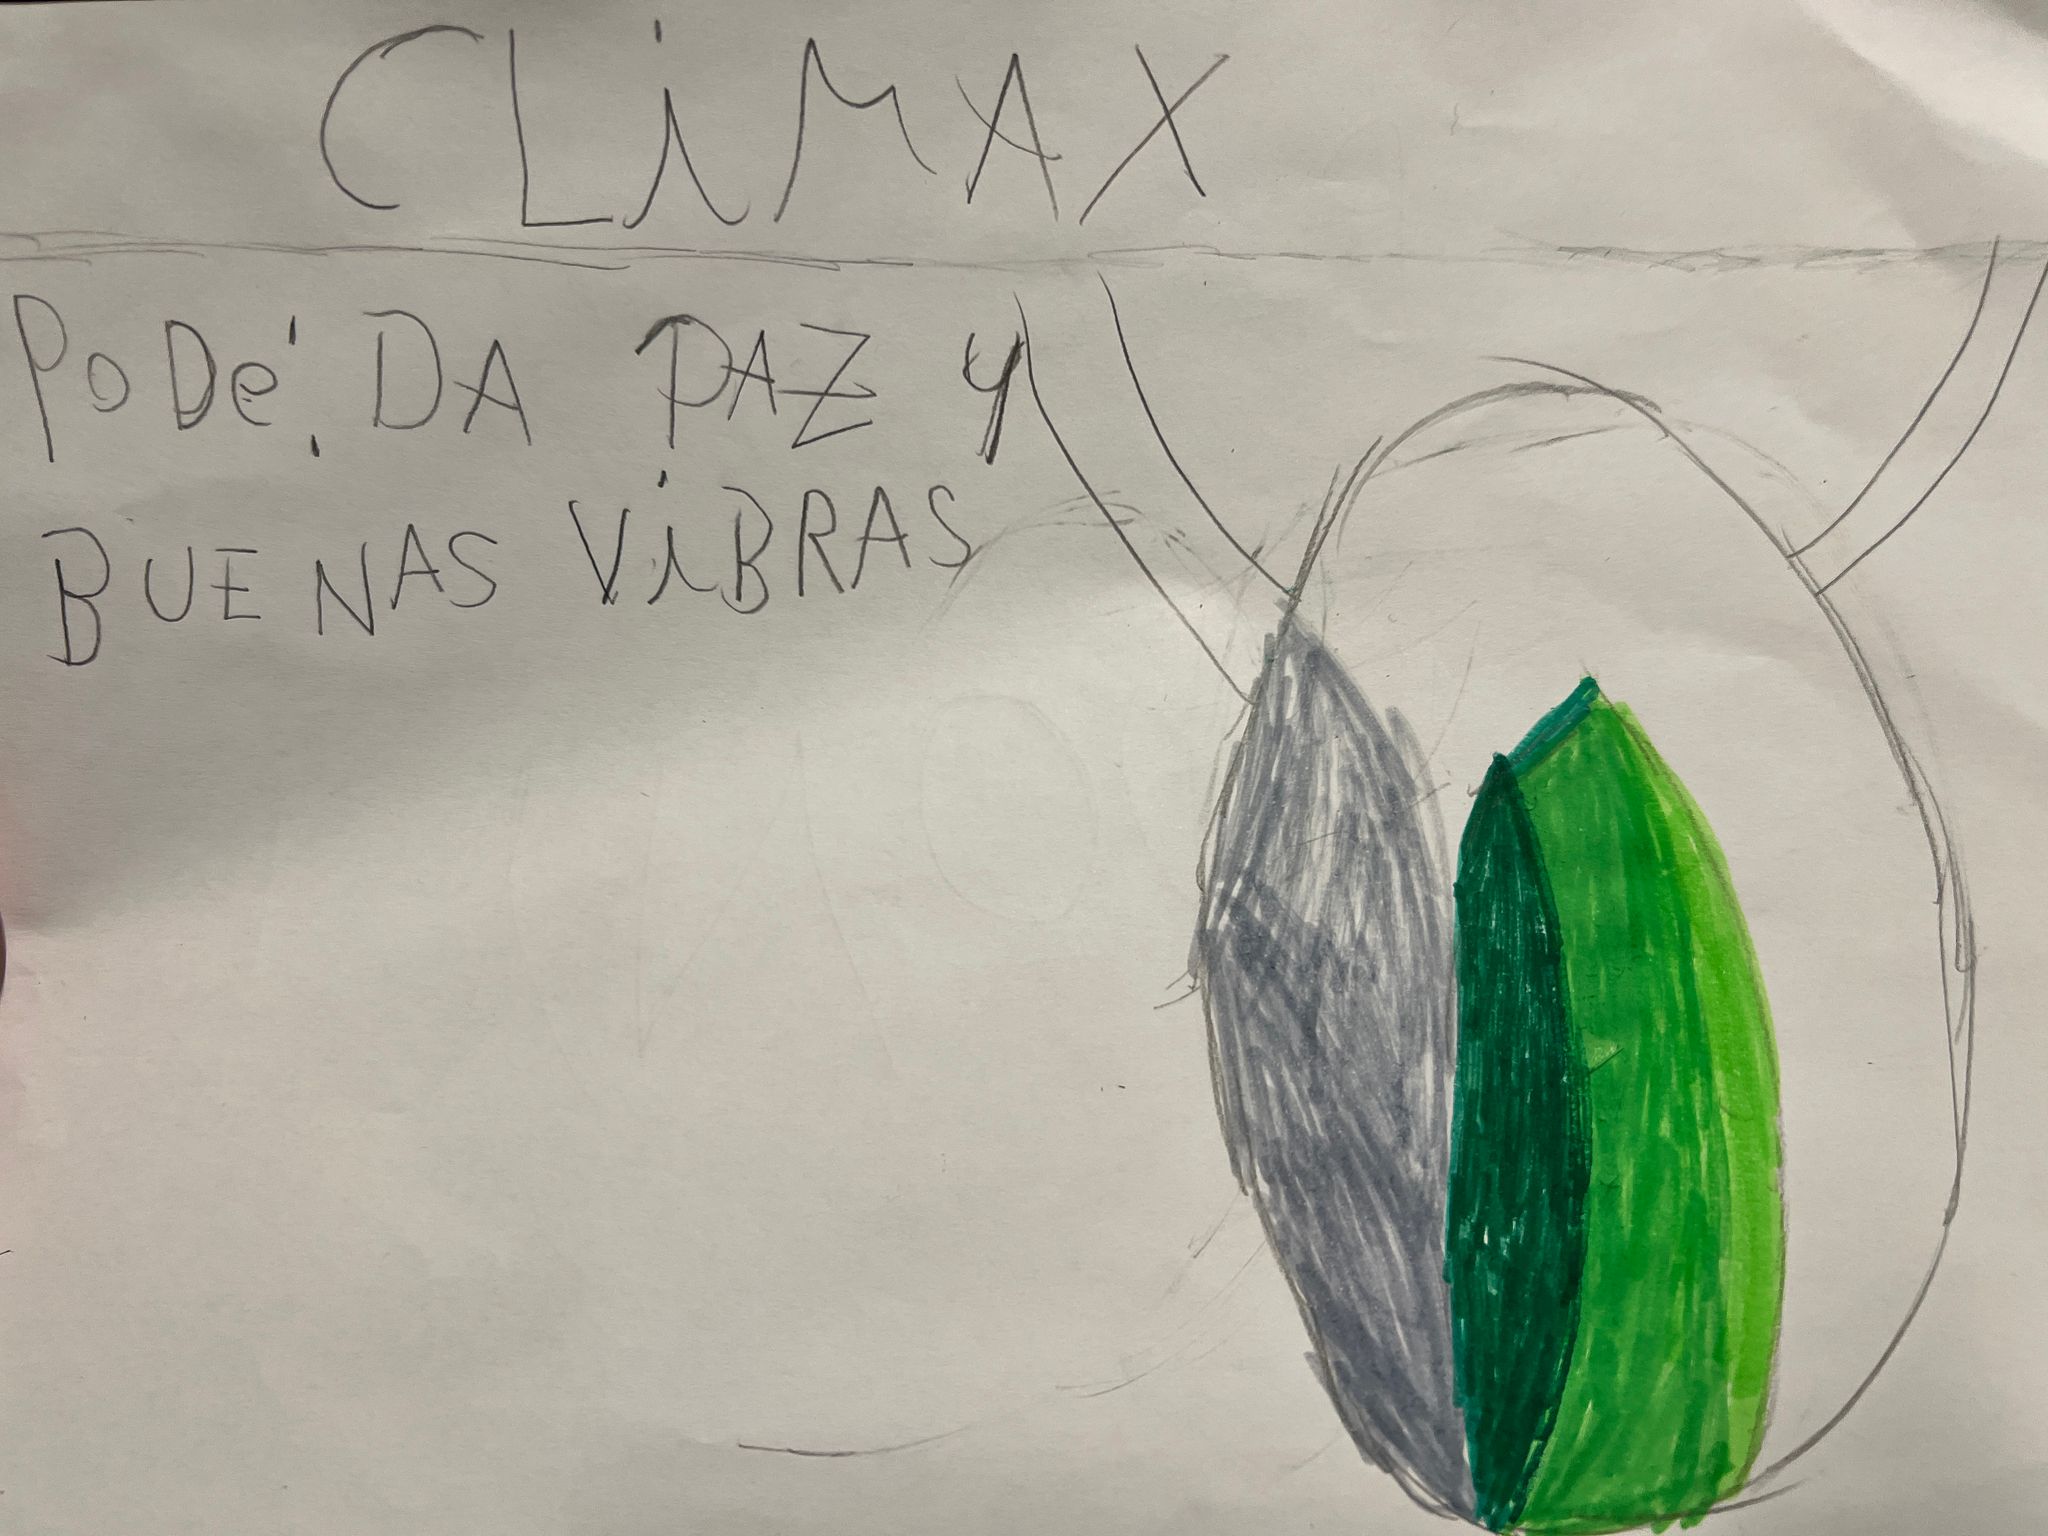 CLiMAX
PODE'. DA PAZ Y
BUENAS ViBRAS